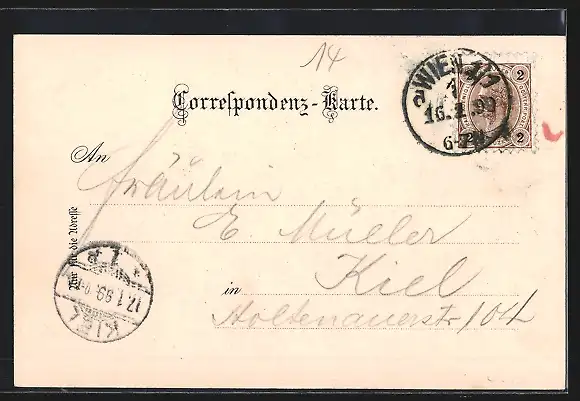 14
WIEN 1/1
1
16.1.99
6-7
2
2
Correspondenz-Karte.
An
Fräulein
E. Müller
Nur für die Adresse
Kiel
in
Holtenauerstr 104
KIEL
17.1.99